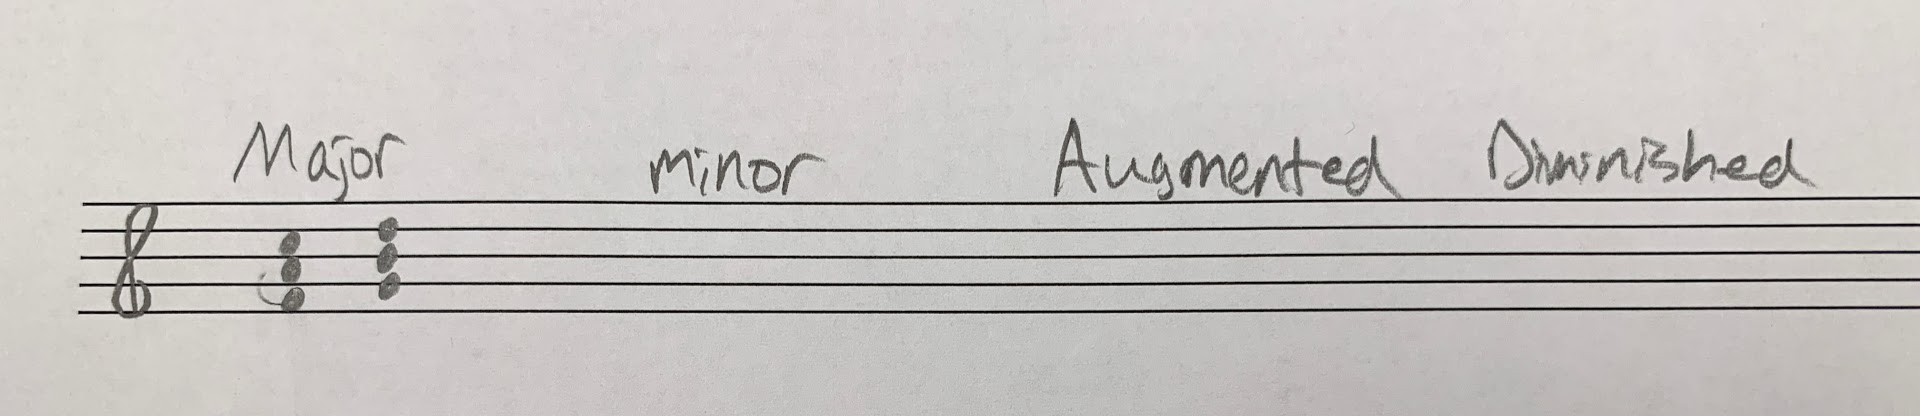 Major minor Augmented Diminished